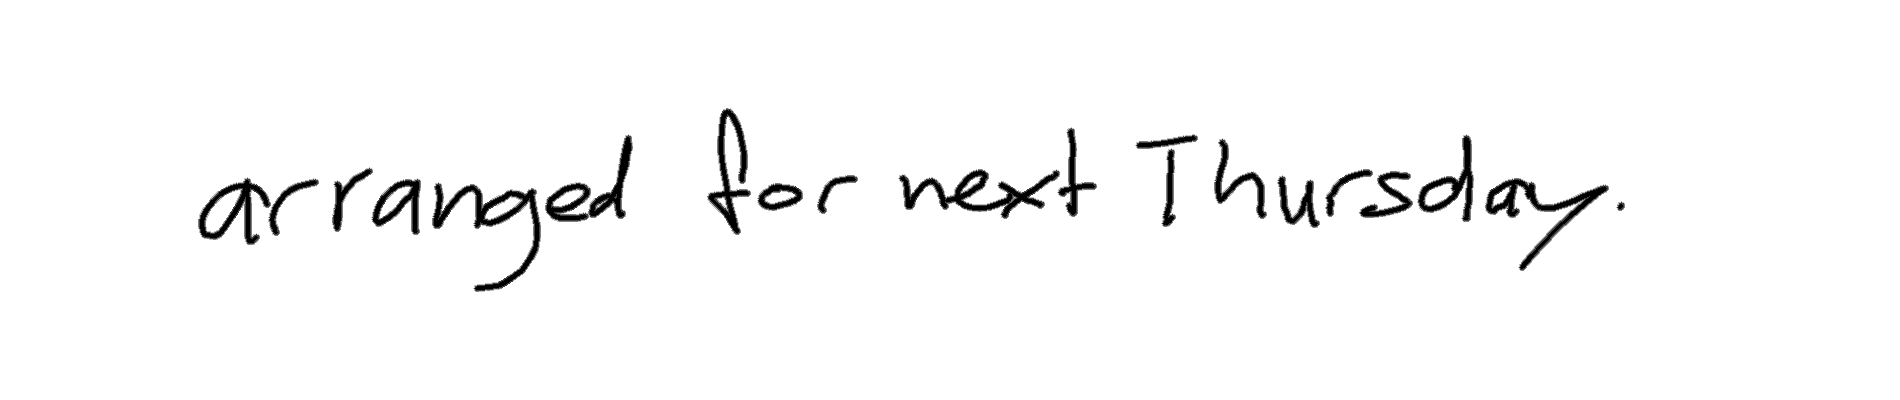 arranged for next Thursday.